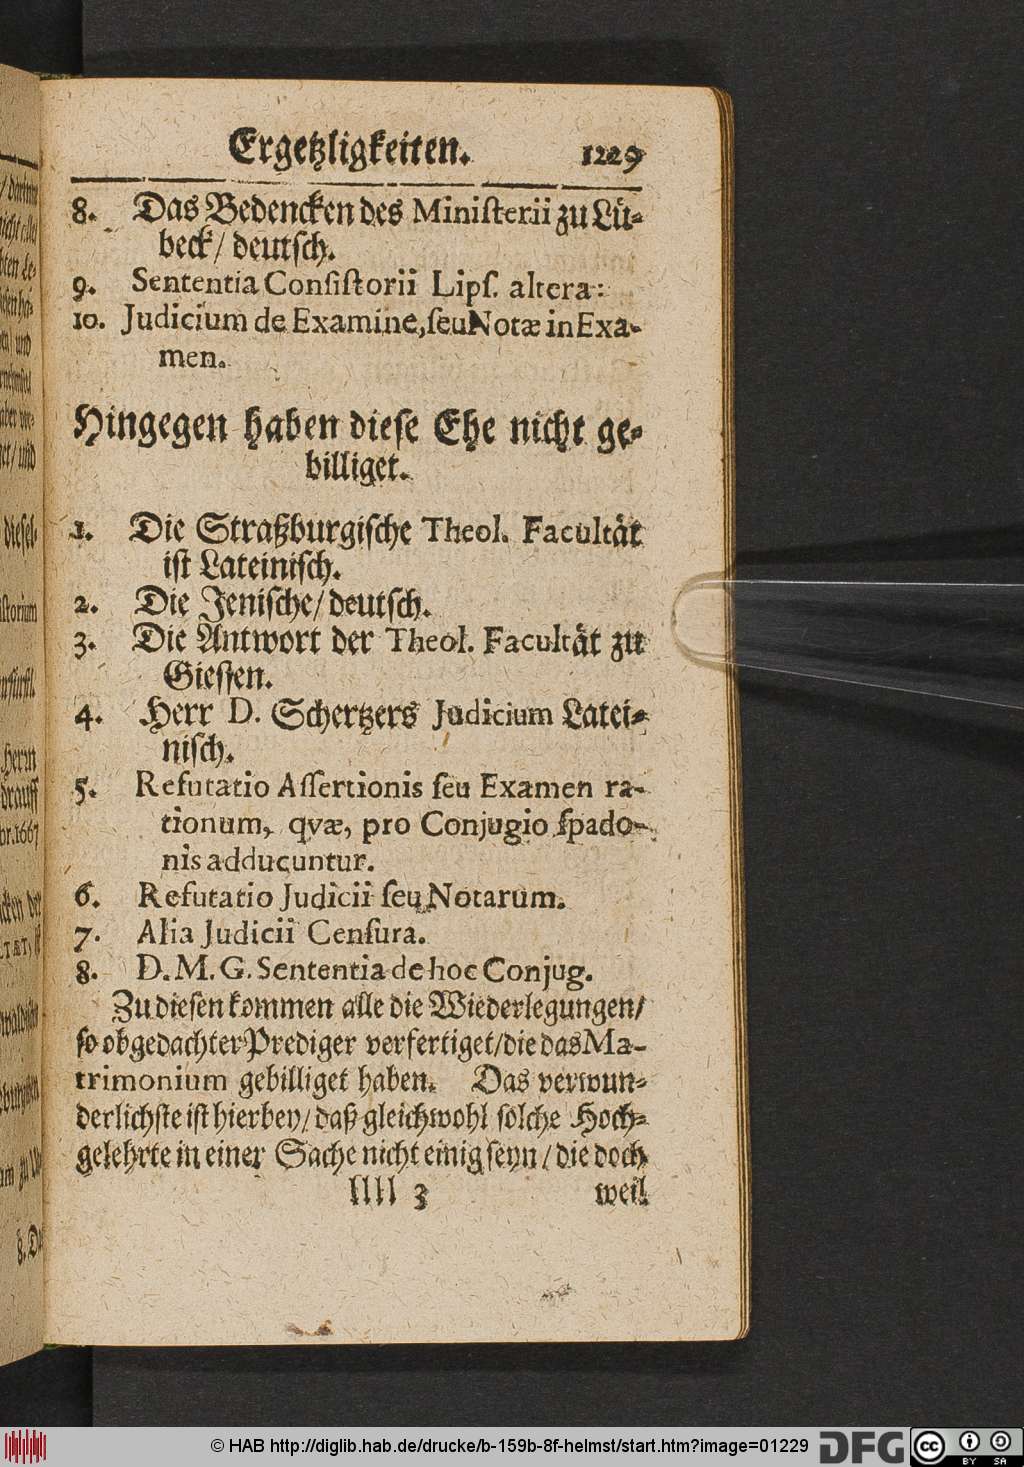 Ergetzligkeiten. 1229
8. Das Bedencken des Ministerii zu Lü-
beck/ deutsch.
9. Sententia Consistorii Lips. altera:
10. Judicium de Examine, seu Notæ in Exa-
men.
Hingegen haben diese Ehe nicht ge-
billiget.
1. Die Straßburgische Theol. Facultät
ist Lateinisch.
2. Die Jenische/ deutsch.
3. Die Antwort der Theol. Facultät zu
Giessen.
4. Herr D. Schertzers Judicium Latei-
nisch.
5. Refutatio Assertionis seu Examen ra-
tionum, qvæ, pro Conjugio spado-
nis adducuntur.
6. Refutatio Judicii seu Notarum.
7. Alia Judicii Censura.
8. D. M. G. Sententia de hoc Conjug.
Zu diesen kommen alle die Wiederlegungen/
so obgedachter Prediger verfertiget/ die das Ma-
trimonium gebilliget haben. Das verwun-
derlichste ist hierbey/ daß gleichwohl solche Hoch-
gelehrte in einer Sache nicht einig seyn/ die doch
llll 3 weil
© HAB http://diglib.hab.de/drucke/b-159b-8f-helmst/start.htm?image=01229 DFG cc BY SA